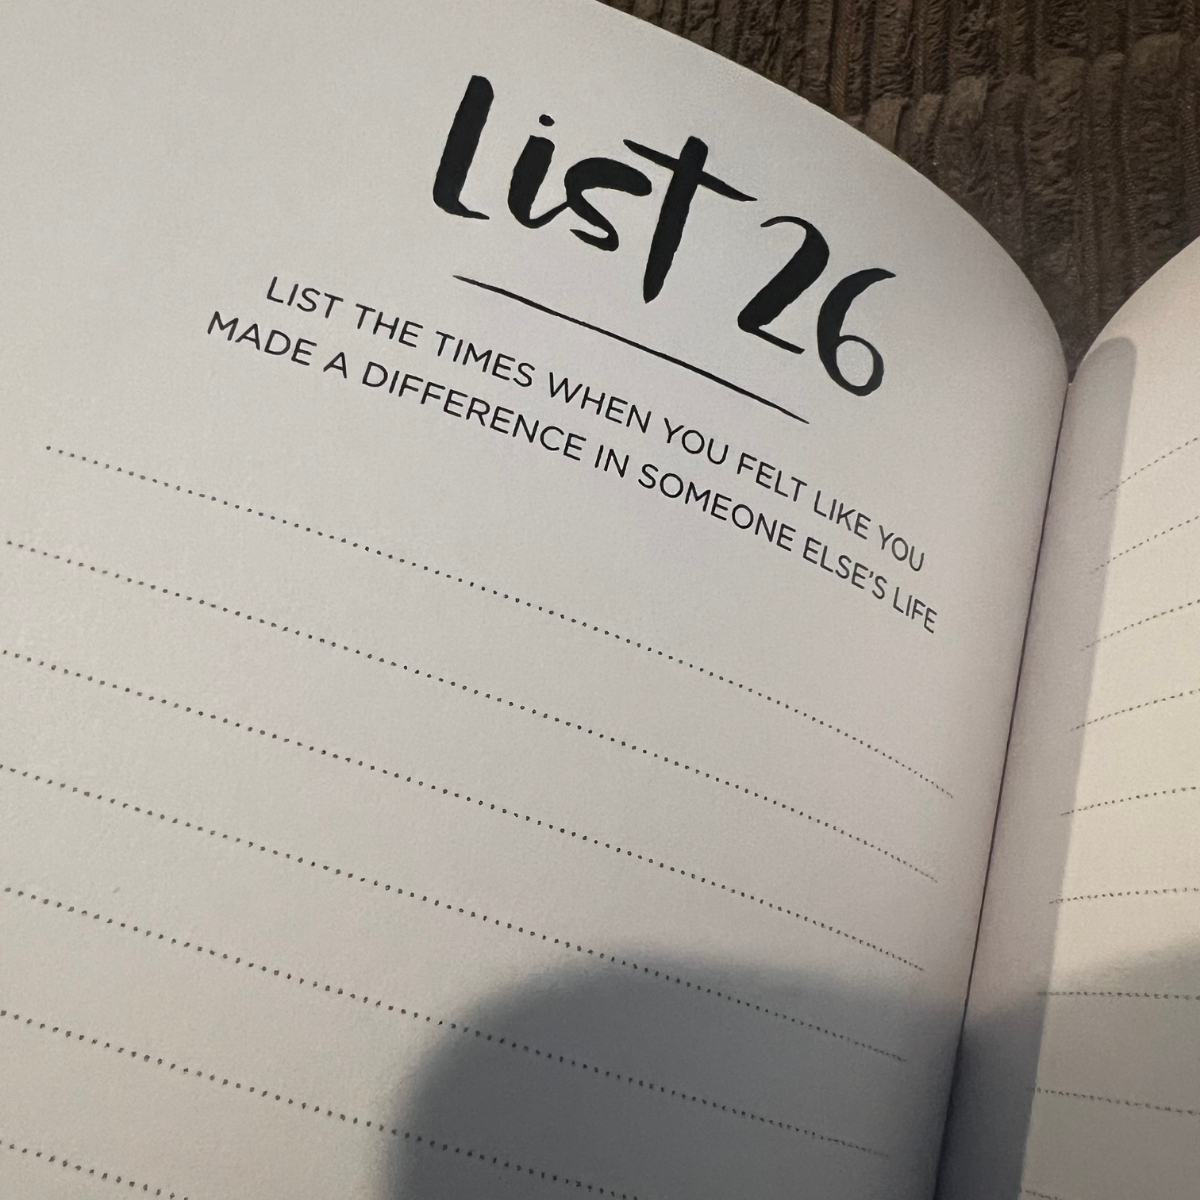 List 26
LIST THE TIMES WHEN YOU FELT LIKE YOU
MADE A DIFFERENCE IN SOMEONE ELSE'S LIFE